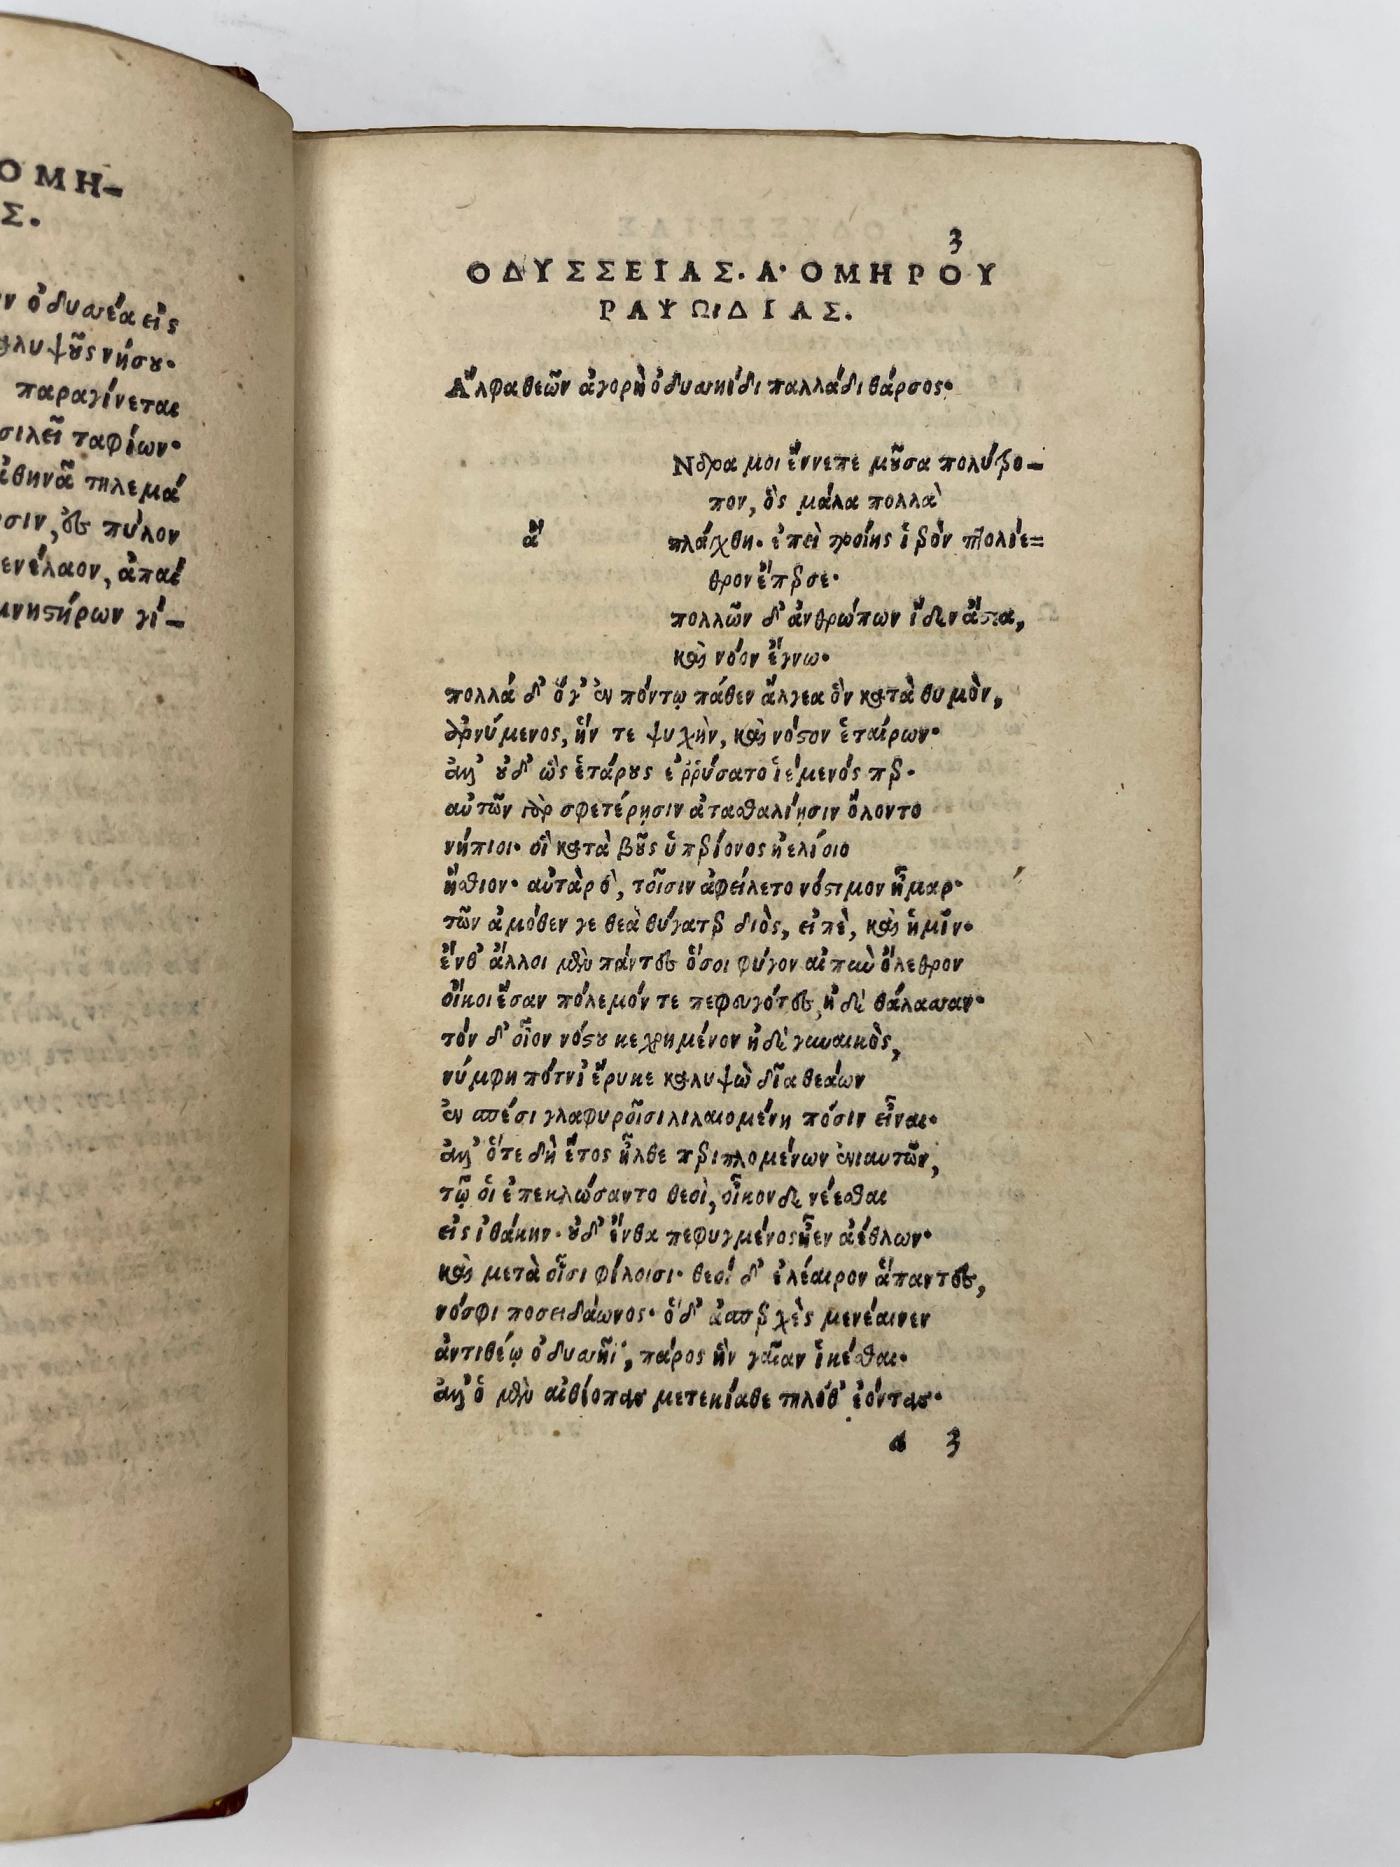 ΟΜΗ-
Σ.
ὀδυσσέα εἰς
νήσου·
παραγίνεται
ταφίων·
τηλεμά
πύλον
ἀπαί
γί-
3
ΟΔΥΣΣΕΙΑΣ. Α· ΟΜΗΡΟΥ
ΡΑΨΩΔΙΑΣ.
Ἄλφα θεῶν ἀγορὴ ὀδυσσηίδι παλλάδι θάρσος·
Νδρα μοι ἔννεπε μοῦσα πολύτρο-
πον, ὃς μάλα πολλὰ
ἄ
πλάγχθη· ἐπεὶ τροίης ἱερὸν πτολίε=
θρον ἔπερσε·
πολλῶν δ' ἀνθρώπων ἴδεν ἄστεα,
καὶ νόον ἔγνω·
πολλά δ' ὅγ' ἐν πόντῳ πάθεν ἄλγεα ὃν κατὰ θυμὸν,
ἀρνύμενος, ἥν τε ψυχὴν, καὶ νόστον ἑταίρων·
ἀλλ' οὐδ' ὣς ἑτάρους ἐῤῥύσατο ἱέμενός περ·
αὐτῶν γὰρ σφετέρῃσιν ἀτασθαλίῃσιν ὄλοντο
νήπιοι· οἳ κατὰ βοῦς ὑπερίονος ἠελίοιο
ἤσθιον· αὐτὰρ ὁ, τοῖσιν ἀφείλετο νόστιμον ἦμαρ·
τῶν ἁμόθεν γε θεὰ θύγατερ διὸς, εἰπὲ, καὶ ἡμῖν·
ἔνθ' ἄλλοι μὲν πάντες ὅσοι φύγον αἰπὺν ὄλεθρον
οἴκοι ἔσαν πόλεμόν τε πεφευγότες, ἠδὲ θάλασσαν·
τόν δ' οἶον νόστου κεχρημένον ἠδὲ γυναικὸς,
νύμφη πότνι' ἔρυκε καλυψὼ δῖα θεάων
ἐν σπέσι γλαφυροῖσι λιλαιομένη πόσιν εἶναι·
ἀλλ' ὅτε δὴ ἔτος ἦλθε περιπλομένων ἐνιαυτῶν,
τῷ οἱ ἐπεκλώσαντο θεοὶ, οἶκον δὲ νέεσθαι
εἰς ἰθάκην· οὐδ' ἔνθα πεφυγμένος ἦεν ἀέθλων·
καὶ μετὰ οἷσι φίλοισι· θεοί δ' ἐλέαιρον ἅπαντες,
νόσφι ποσειδάωνος· ὅ δ' ἀσπερχὲς μενέαινεν
ἀντιθέῳ ὀδυσσῆϊ, πάρος ἣν γαῖαν ἱκέσθαι·
ἀλλ' ὁ μὲν αἰθίοπας μετεκίαθε τηλόθ' ἐόντας·
a 3